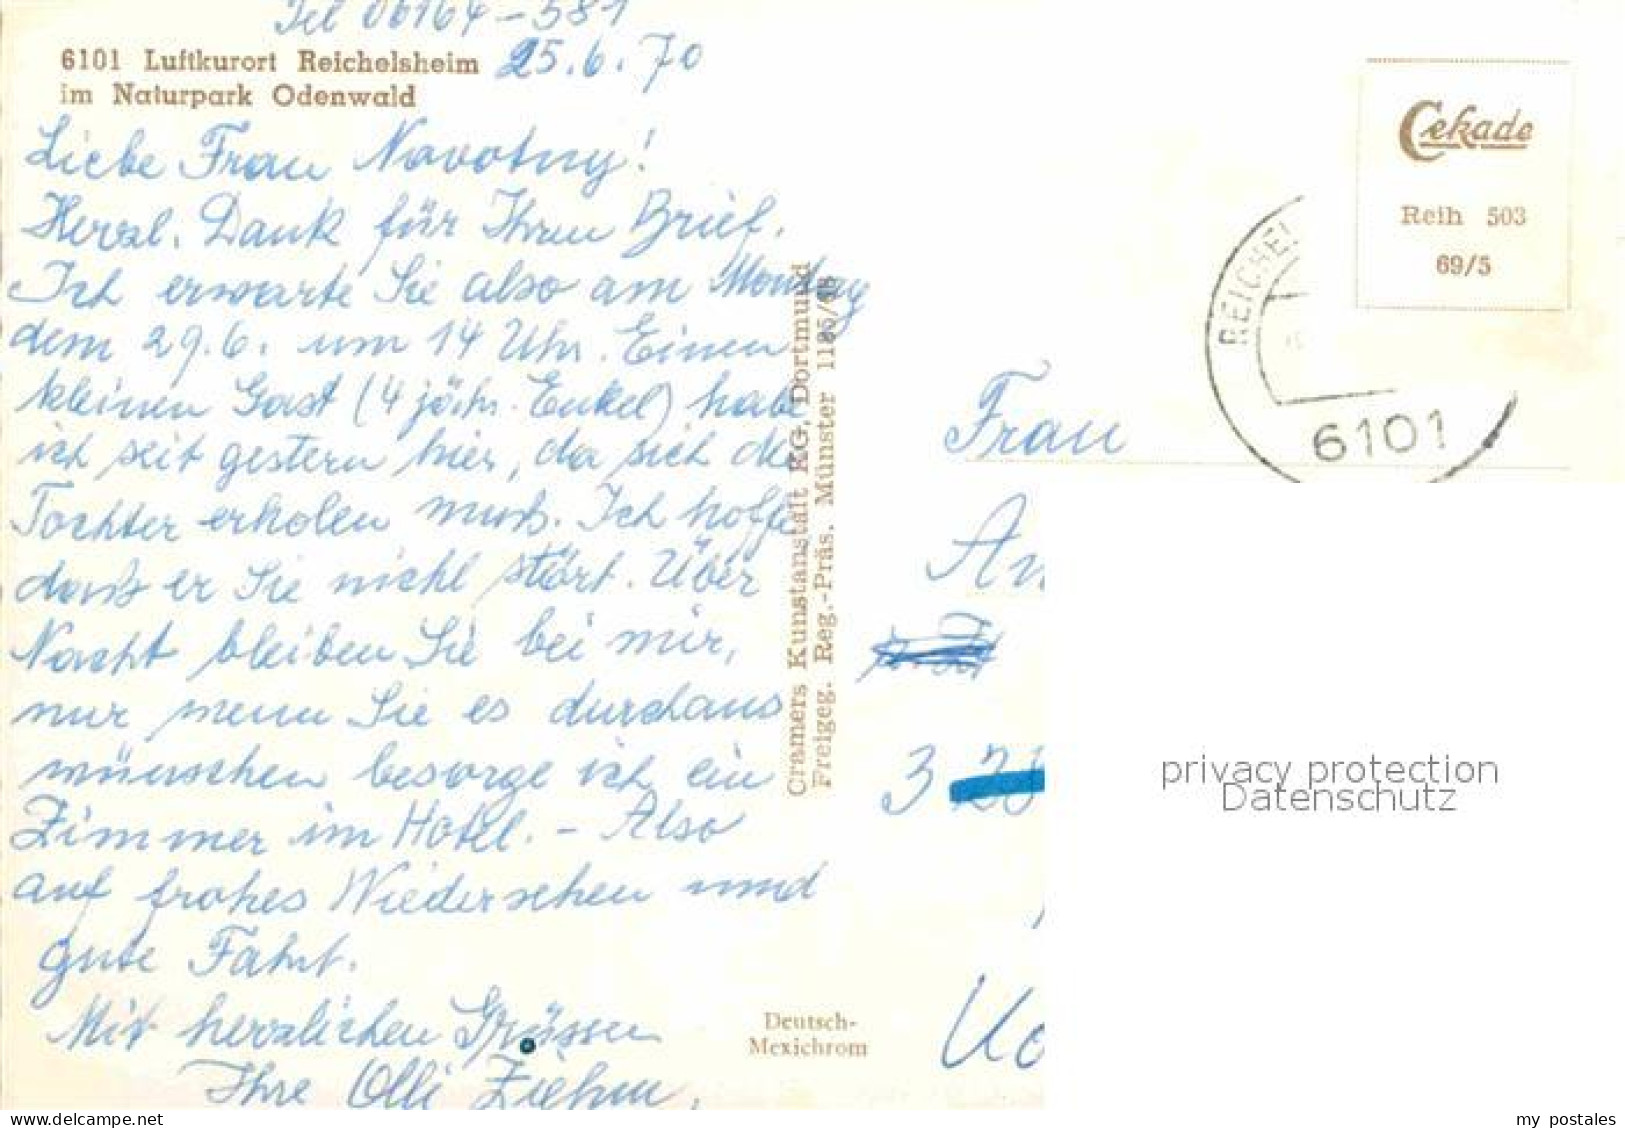 Tel 06164-581
6101 Luftkurort Reichelsheim
im Naturpark Odenwald
25.6.70
Liebe Frau Novotny!
Herzl. Dank für Ihren Brief.
Ich erwarte Sie also am Montag
dem 29.6. um 14 Uhr. Einen
kleinen Gast (4 jähr. Enkel) habe
ich seit gestern hier, da sich die
Tochter erholen muß. Ich hoffe
daß er Sie nicht stört. Über
Nacht bleiben Sie bei mir,
nur wenn Sie es durchaus
wünschen besorge ich ein
Zimmer im Hotel. - Also
auf frohes Wiedersehen und
gute Fahrt.
Mit herzlichen Grüssen
Ihre Olli Ziehm.
Cramers Kunstanstalt KG, Dortmund
Freigeg. Reg.-Präs. Münster
Deutsch-
Mexichrom
Cekade
Reih 503
69/5
REICHEL
6101
Frau
An
3
privacy protection
Datenschutz
the-violet-fairy
my postales